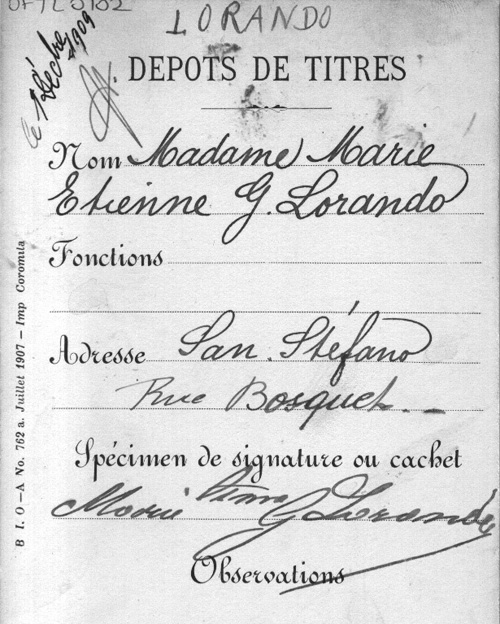 LORANDO
le 1 Décbre 1909
DEPOTS DE TITRES
Nom Madame Marie
Etienne G. Lorando
Fonctions
Adresse San. Stéfano
Rue Bosquet
Spécimen de signature ou cachet
Marie G Lorando
Observations
B I. O—A No. 762 a. Juillet 1907 — Imp Coromula